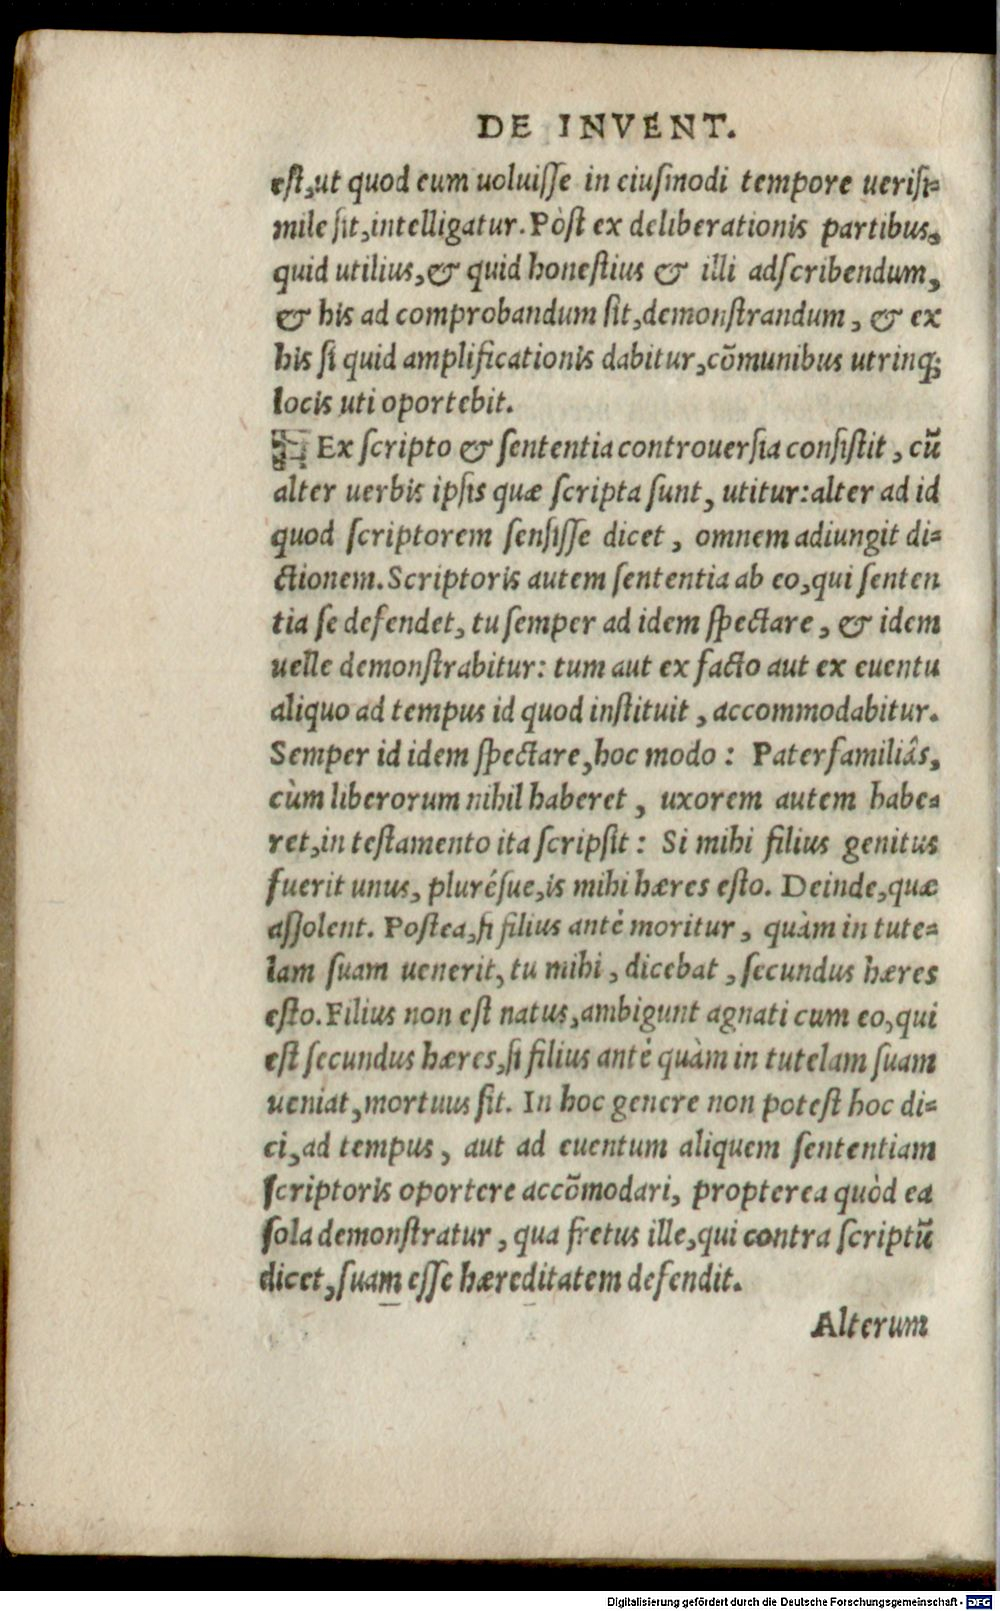 DE INVENT.
eſt,ut quod eum uoluiſſe in eiuſmodi tempore ueriſi⸗
mile ſit,intelligatur. Pòſt ex deliberationis partibus,
quid utilius,& quid honeſtius & illi adſcribendum,
& his ad comprobandum ſit,demonſtrandum, & ex
his ſi quid amplificationis dabitur,cõmunibus utrinq;
locis uti oportebit.
Ex ſcripto & ſententia controuerſia conſiſtit, cũ
alter uerbis ipſis quæ ſcripta ſunt, utitur: alter ad id
quod ſcriptorem ſenſiſſe dicet, omnem adiungit di⸗
ctionem. Scriptoris autem ſententia ab eo,qui ſenten
tia ſe defendet, tu ſemper ad idem ſpectare, & idem
uelle demonſtrabitur: tum aut ex facto aut ex euentu
aliquo ad tempus id quod inſtituit, accommodabitur.
Semper id idem ſpectare,hoc modo: Paterfamiliâs,
cùm liberorum nihil haberet, uxorem autem habe⸗
ret,in teſtamento ita ſcripſit: Si mihi filius genitus
fuerit unus, plurésue,is mihi hæres eſto. Deinde,quæ
aſſolent. Poſtea,ſi filius antè moritur, quàm in tute⸗
lam ſuam uenerit, tu mihi, dicebat, ſecundus hæres
eſto. Filius non eſt natus,ambigunt agnati cum eo,qui
eſt ſecundus hæres,ſi filius antè quàm in tutelam ſuam
ueniat,mortuus ſit. In hoc genere non poteſt hoc di⸗
ci,ad tempus, aut ad euentum aliquem ſententiam
ſcriptoris oportere accõmodari, propterea quòd ea
ſola demonſtratur, qua fretus ille,qui contra ſcriptũ
dicet,ſuam eſſe hæreditatem defendit.
Alterum
Digitalisierung gefördert durch die Deutsche Forschungsgemeinschaft - DFG